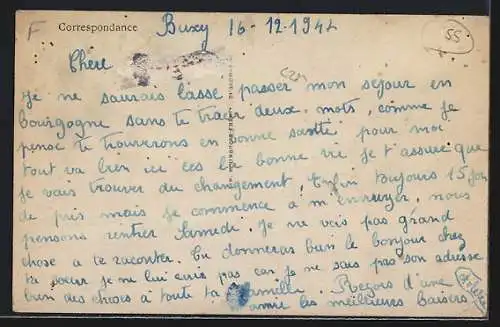 F
Correspondance
Buxy 16-12-1942
55
Chère
Je ne saurais lasse passer mon sejour en
bourgogne sans te tracer deux mots, comme je
pense te trouverons en bonne santé pour moi
tout va bien ici ces la bonne vie je t'assure que
je vais trouver du changement, Enfin toujours 15 jour
de pris mais je commence a m'ennuyer, nous
pensons rentrer Samedi. Je ne vois pas grand
chose a te raconter. Tu donneras bien le bonjour chez
ta sœur je ne lui ecris pas car je ne sais pas son adresse
bien des choses a toute ta famille. Reçois d'une
amie les meilleurs baisers